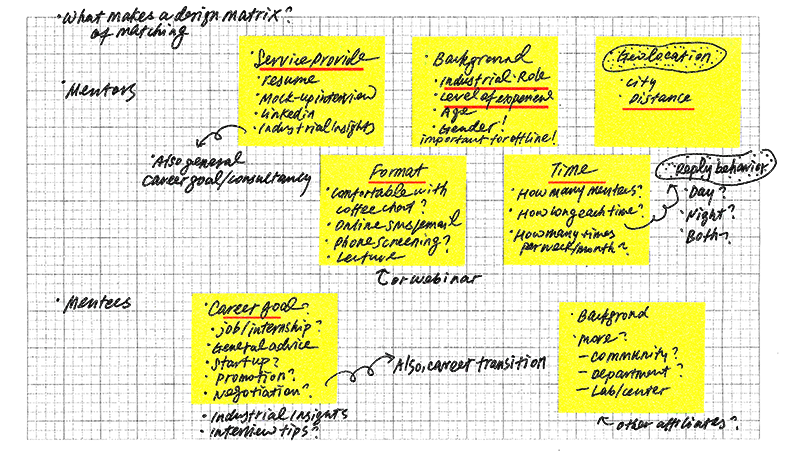 • What makes a design matrix?
of matching
• Mentors
• Service provide
• resume
Mock-up interview
• Linkedin
• Industrial Insights
• Also general
career goal/consultancy
• Background
• Industrial Role
• Level of
• Age
• Gender!
important for offline!
Geolocation
• City
• Distance
Format
• Comfortable with
coffee chat?
• Online sms/email
• phone screening?
• Lecture
or webinar
Time
• How many mentees?
• How long each time?
• How many times
per week/month?
Reply behavior
• Day?
• Night?
• Both?
• Mentees
• Career goal
• job/internship?
• General advice
• Startup?
• promotion?
• Negotiation?
• Industrial Insights
• Interview tips?
Also, career transition
• Background
• more?
– community?
– department?
– Lab/center
other affiliates?